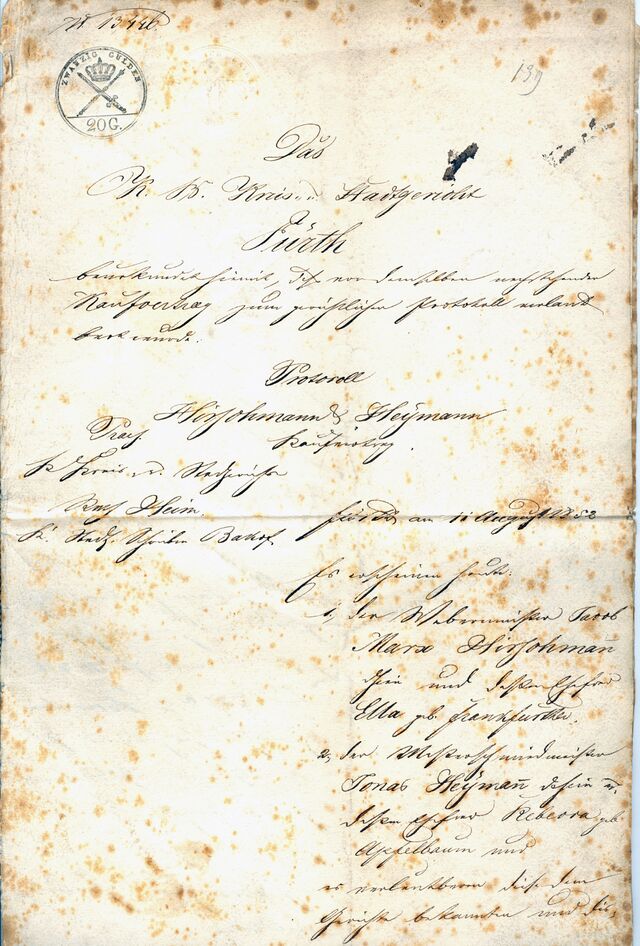 N 13446.
ZWANZIG GULDEN
20 G.
139
Das
K. B. Kreis- u. Stadtgericht
Fürth
beurkundet hiemit, daß vor demselben nachstehender
Kaufvertrag zum gerichtlichen Protokoll verlaut
bart wurde.
Protocoll
Hirschmann & Heÿmann
Kaufvertrag.
Praes.
K. Kreis u. Stadtrichter
Fürth am 11 August 1852
K. Stadtg. Schreiber
Es erscheinen heute:
1, der Webermeister Jacob
Marx Hirschmañ
und dessen Ehefrau
Ella geb. Frankfurter.
2, der Messerschmiedmeister
Jonas Heÿmañ u.
dessen Ehefrau Rebecca geb.
Apfelbaum und
es verlautbaren diese dem
Gerichte bekannten und dis-